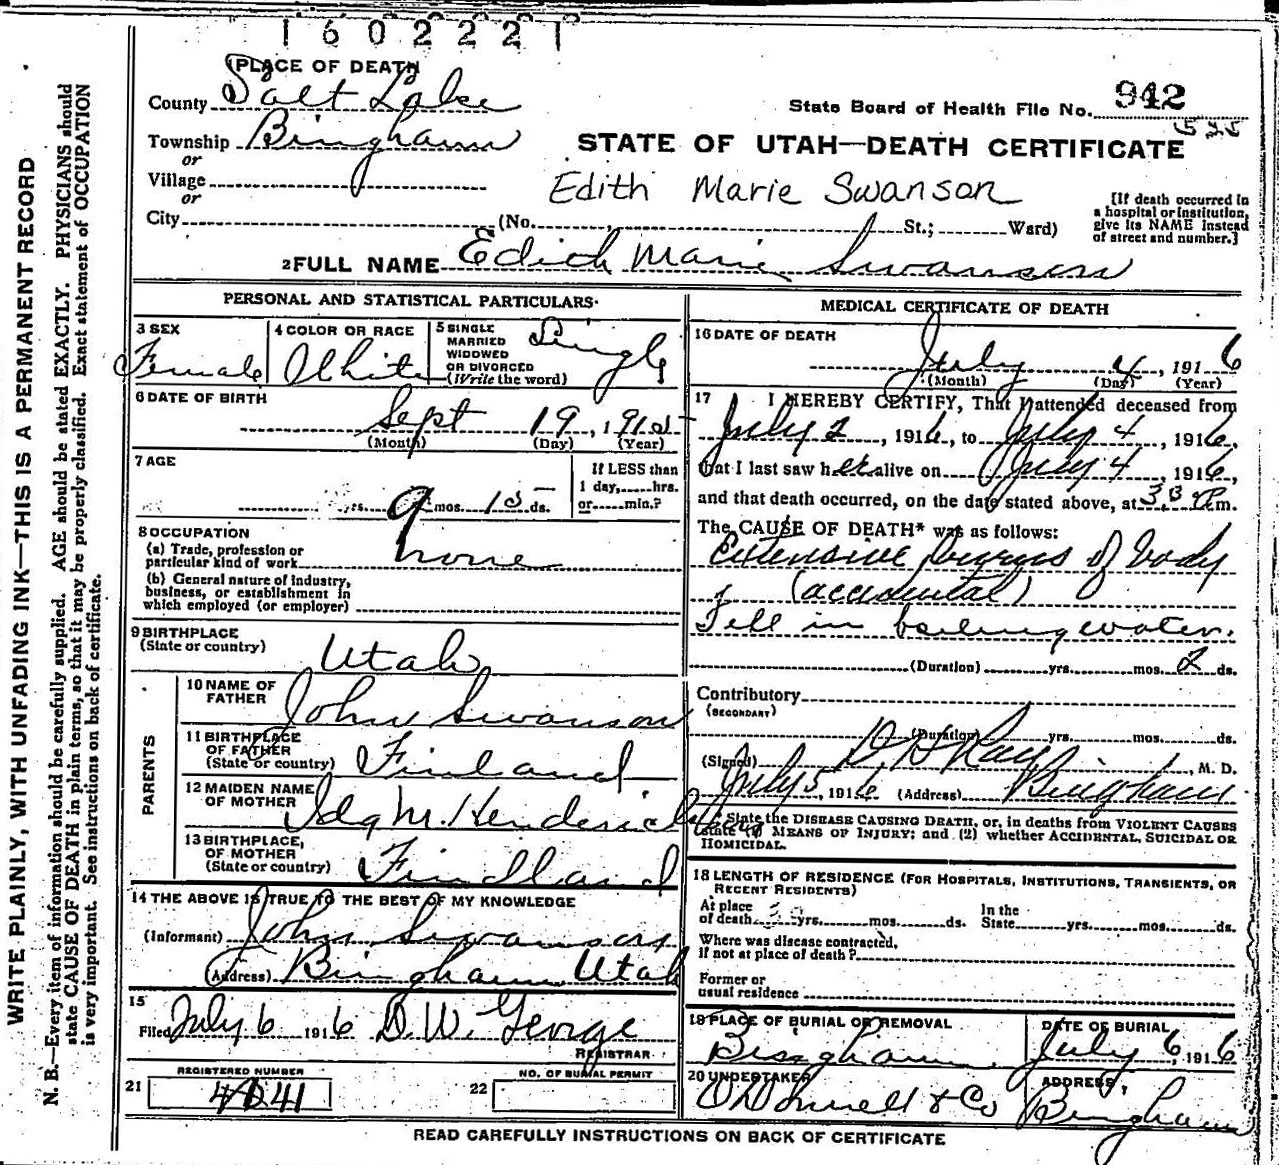 1602221
PLACE OF DEATH
County Salt Lake
State Board of Health File No. 942
Township Bingham
or
STATE OF UTAH—DEATH CERTIFICATE
Village
or
Edith Marie Swanson
City (No. St.; Ward)
[If death occurred in
a hospital or institution,
give its NAME instead
of street and number.]
2 FULL NAME Edith Marie Swanson
WRITE PLAINLY, WITH UNFADING INK—THIS IS A PERMANENT RECORD
N. B.—Every item of information should be carefully supplied. AGE should be stated EXACTLY. PHYSICIANS should
state CAUSE OF DEATH in plain terms, so that it may be properly classified. Exact statement of OCCUPATION
is very important. See instructions on back of certificate.
PERSONAL AND STATISTICAL PARTICULARS
3 SEX
Female
4 COLOR OR RACE
White
5 SINGLE
MARRIED
WIDOWED
OR DIVORCED
(Write the word)
Single
6 DATE OF BIRTH
Sept 19, 1915
(Month) (Day) (Year)
7 AGE
yrs. 9 mos. 15 ds.
If LESS than
1 day, hrs.
or min.?
8 OCCUPATION
(a) Trade, profession or
particular kind of work none
(b) General nature of industry,
business, or establishment in
which employed (or employer)
9 BIRTHPLACE
(State or country) Utah
PARENTS
10 NAME OF
FATHER John Swanson
11 BIRTHPLACE
OF FATHER
(State or country) Finland
12 MAIDEN NAME
OF MOTHER Ida M. Hendrickson
13 BIRTHPLACE,
OF MOTHER
(State or country) Findland
14 THE ABOVE IS TRUE TO THE BEST OF MY KNOWLEDGE
(Informant) John Swanson
(Address) Bingham Utah
15
Filed July 6 1916 D. W. George
REGISTRAR
REGISTERED NUMBER
21
NO. OF BURIAL PERMIT
22
MEDICAL CERTIFICATE OF DEATH
16 DATE OF DEATH
July 4, 1916
(Month) (Day) (Year)
17 I HEREBY CERTIFY, That I attended deceased from
July 2, 1916, to July 4, 1916,
that I last saw her alive on July 4, 1916,
and that death occurred, on the date stated above, at P.m.
The CAUSE OF DEATH* was as follows:
Extensive burns of body
(accidental)
Fell in boiling water.
(Duration) yrs. mos. 2 ds.
Contributory
(SECONDARY)
(Duration) yrs. mos. ds.
(Signed) D H Ray, M. D.
July 5, 1916 (Address) Bingham
* State the DISEASE CAUSING DEATH, or, in deaths from VIOLENT CAUSES
state (1) MEANS OF INJURY; and (2) whether ACCIDENTAL, SUICIDAL OR
HOMICIDAL.
18 LENGTH OF RESIDENCE (FOR HOSPITALS, INSTITUTIONS, TRANSIENTS, OR
RECENT RESIDENTS)
At place
of death yrs. mos. ds.
In the
State yrs. mos. ds.
Where was disease contracted,
if not at place of death?
Former or
usual residence
19 PLACE OF BURIAL OR REMOVAL
Bingham
DATE OF BURIAL
July 6, 1916
20 UNDERTAKER
O'Donnell & Co
ADDRESS,
Bingham
READ CAREFULLY INSTRUCTIONS ON BACK OF CERTIFICATE